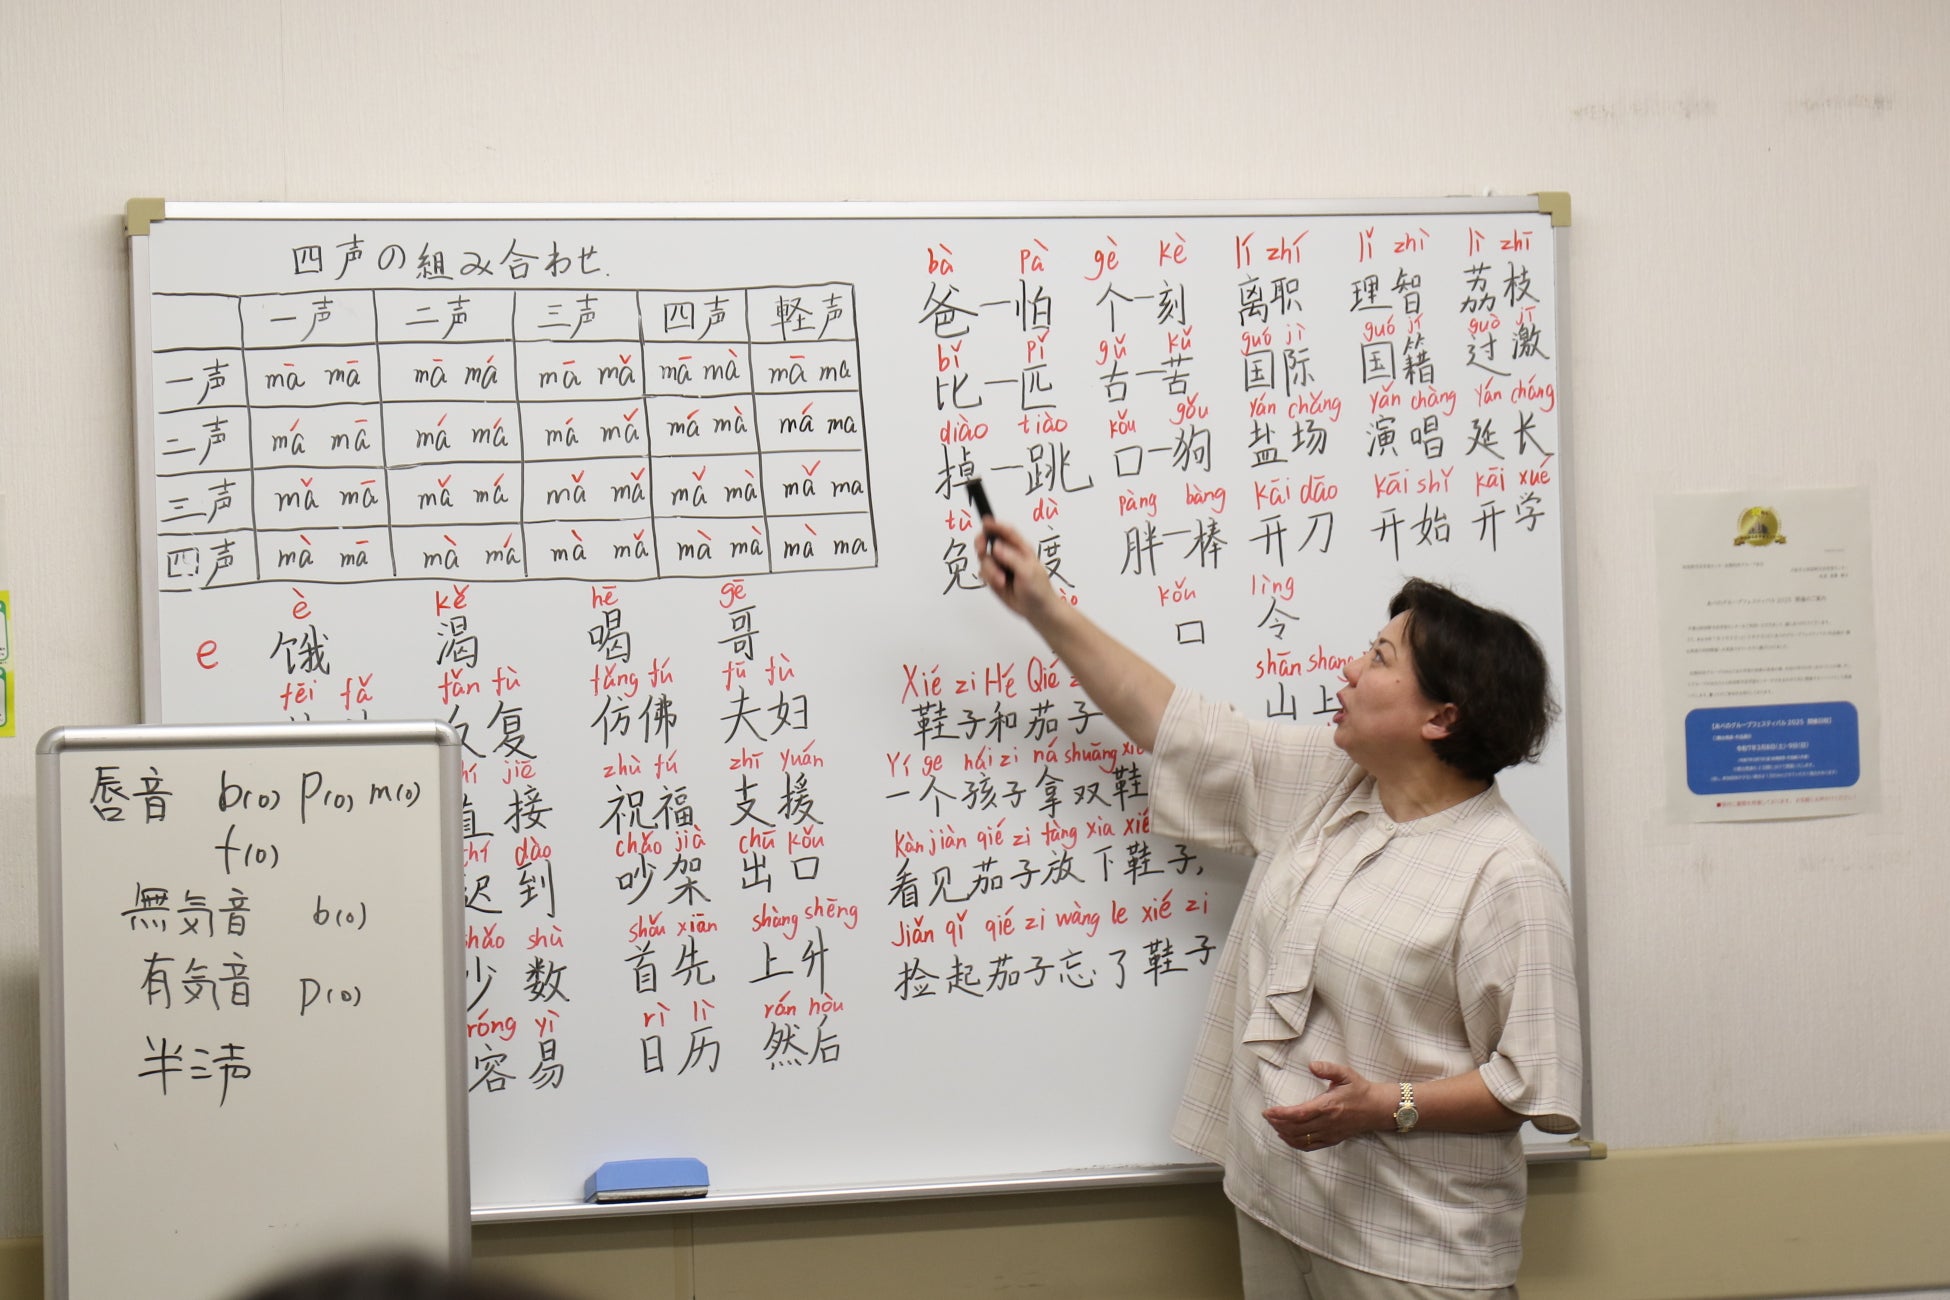 四声の組み合わせ.
一声 二声 三声 四声 軽声
一声 mā mā mā má mā mǎ mā mà mā ma
二声 má mā má má má mǎ má mà má ma
三声 mǎ mā mǎ má mǎ mǎ mǎ mà mǎ ma
四声 mà mā mà má mà mǎ mà mà mà ma
è kě hē gē
e 饿 渴 喝 哥
fēi fǎ fǎn fù fǎng fú fū fù
反复 仿佛 夫妇
jiē zhù fú zhī yuán
直接 祝福 支援
dào chǎo jià chū kǒu
迟到 吵架 出口
shǎo shù shǒu xiān shàng shēng
少数 首先 上升
róng yì rì lì rán hòu
容易 日历 然后
bà pà gè kè lí zhí lǐ zhì lì zhī
爸—怕 个—刻 离职 理智 荔枝
bǐ pǐ gǔ kǔ guó jì guó jí guò jī
比—匹 古—苦 国际 国籍 过激
diào tiào kǒu gǒu yán chǎng yǎn chàng yán cháng
掉—跳 口—狗 盐场 演唱 延长
tù dù pàng bàng kāi dāo kāi shǐ kāi xué
兔 度 胖—棒 开刀 开始 开学
kǒu lìng
口 令
shān shang
山上
Xié zi Hé Qié z
鞋子和茄子
Yí ge hái zi ná shuāng xié
一个孩子拿双鞋
Kàn jiàn qié zi fàng xià xié
看见茄子放下鞋子,
Jiǎn qǐ qié zi wàng le xié zi
捡起茄子忘了鞋子
唇音 b(o) p(o) m(o)
f(o)
無気音 b(o)
有気音 p(o)
半三声